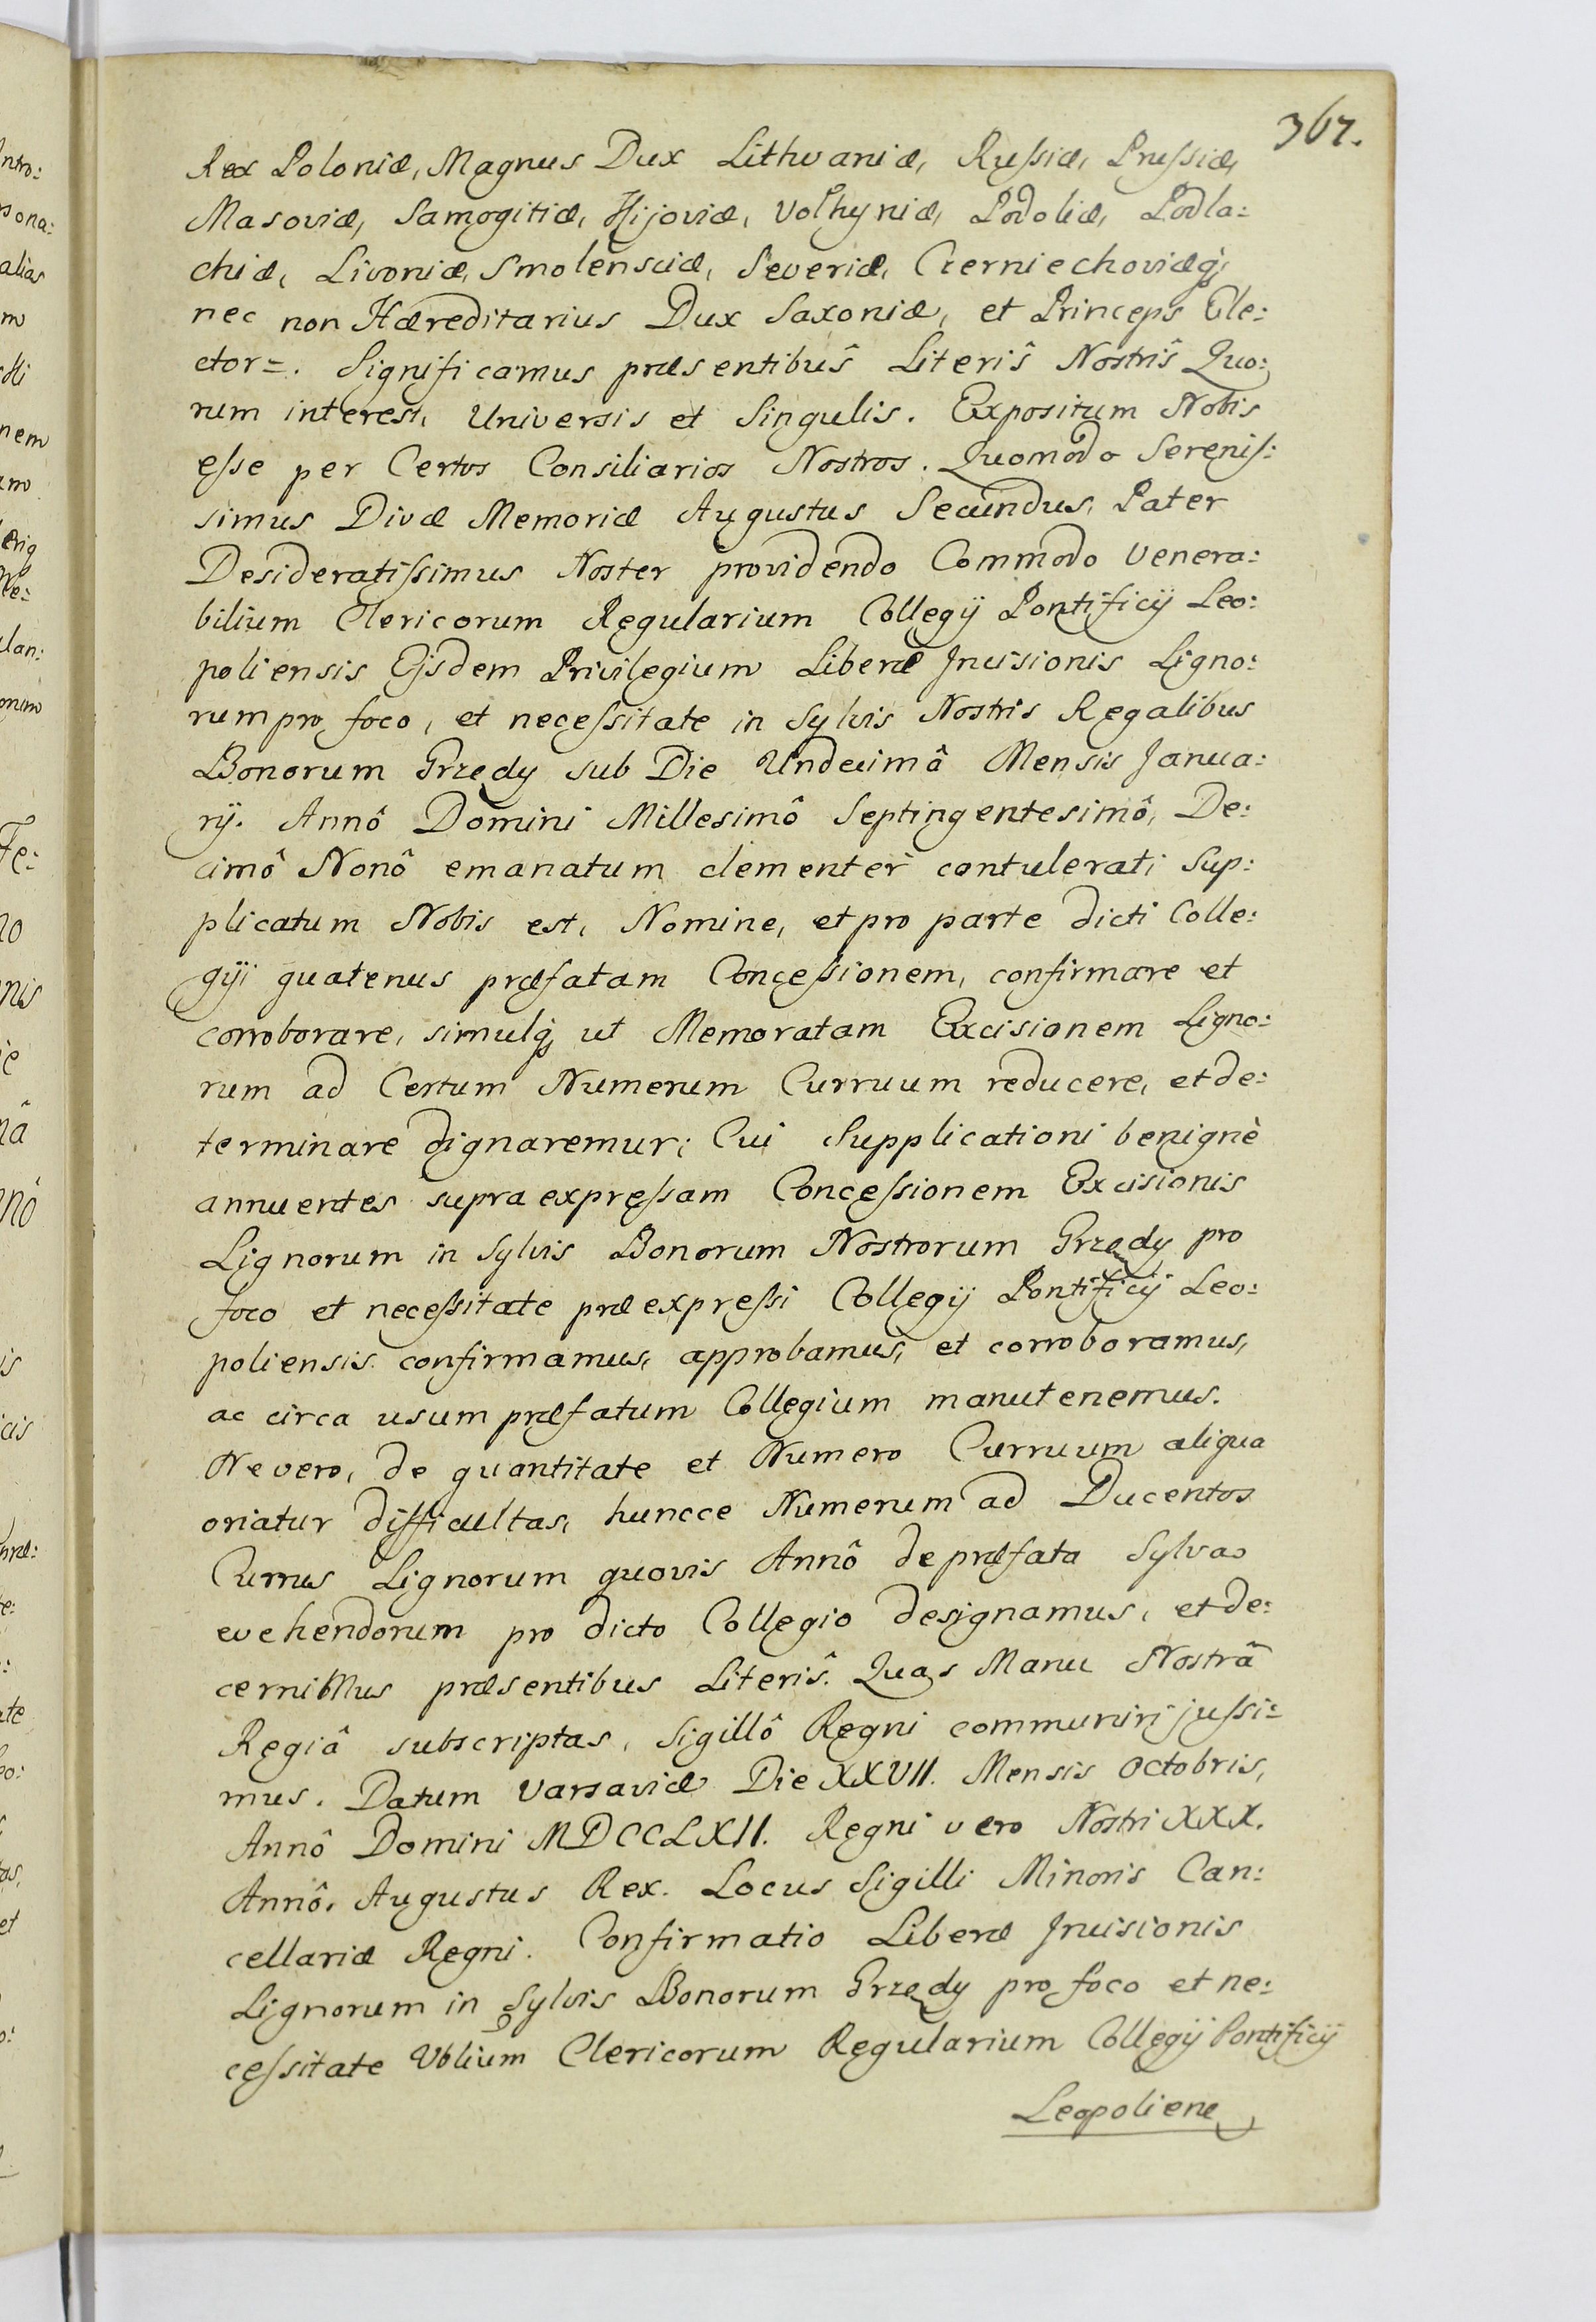 367.
Rex Poloniæ, Magnus Dux Lithvaniæ, Rußiæ, Prußiæ,
Masoviæ, Samogitiæ, Kijoviæ, Volhyniæ, Podoliæ, Podla:
chiæ, Livoniæ, Smolensciæ, Severiæ, Czerniechoviæq;
nec non Hæreditarius Dux Saxoniæ, et Princeps Ele:
ctor=. Significamus præsentibus Literis Nostris Quo:
rum interest, Universis et Singulis. Expositum Nobis
eße per Certos Consiliarios Nostros. Quomodo Sereniß:
simus Divæ Memoriæ Augustus Secundus, Pater
Desideratißimus Noster providendo Commodo Venera:
bilium Clericorum Regularium Collegij Pontificij Leo:
poliensis Ejsdem Privilegium Liberæ Incisionis Ligno:
rum pro foco, et neceßitate in Sylvis Nostris Regalibus
Bonorum Grzędy sub Die Undecimâ Mensis Janua:
rij. Annô Domini Millesimô Septingentesimô, De:
cimô Nonô emanatum clementer contulerat; Sup:
plicatum Nobis est, Nomine, et pro parte dicti Colle:
gij quatenus præfatam Conceßionem, confirmare et
corroborare, simulq; ut Memoratam Excisionem Ligno:
rum ad Certum Numerum Curruum reducere, et de:
terminare dignaremur; Cui Supplicationi benignè
annuentes supra expreßam Conceßionem Excisionis
Lignorum in Sylvis Bonorum Nostrorum Grzędy pro
foco et neceßitate præexpreßi Collegij Pontificij Leo:
poliensis confirmamus, approbamus, et corroboramus,
ac circa usum præfatum Collegium manutenemus.
Ne vero, de quantitate et Numero Curruum aliqua
oriatur difficultas, huncce Numerum ad Ducentos
Currus Lignorum quovis Annô de præfata Sylva
evehendorum pro dicto Collegio designamus, et de:
cernimus præsentibus Literis. Quas Manu Nostrâ
Regiâ subscriptas, Sigillô Regni communiri jußi:
mus. Datum Varsaviæ Die XXVII. Mensis Octobris,
Annô Domini MDCCLXII. Regni vero Nostri XXX.
Annô. Augustus Rex. Locus Sigilli Minoris Can:
cellariæ Regni. Confirmatio Liberæ Incisionis
Lignorum in Sylvis Bonorum Grzędy pro foco et ne:
ceßitate Vblium Clericorum Regularium Collegij Pontificij
Leopoliens